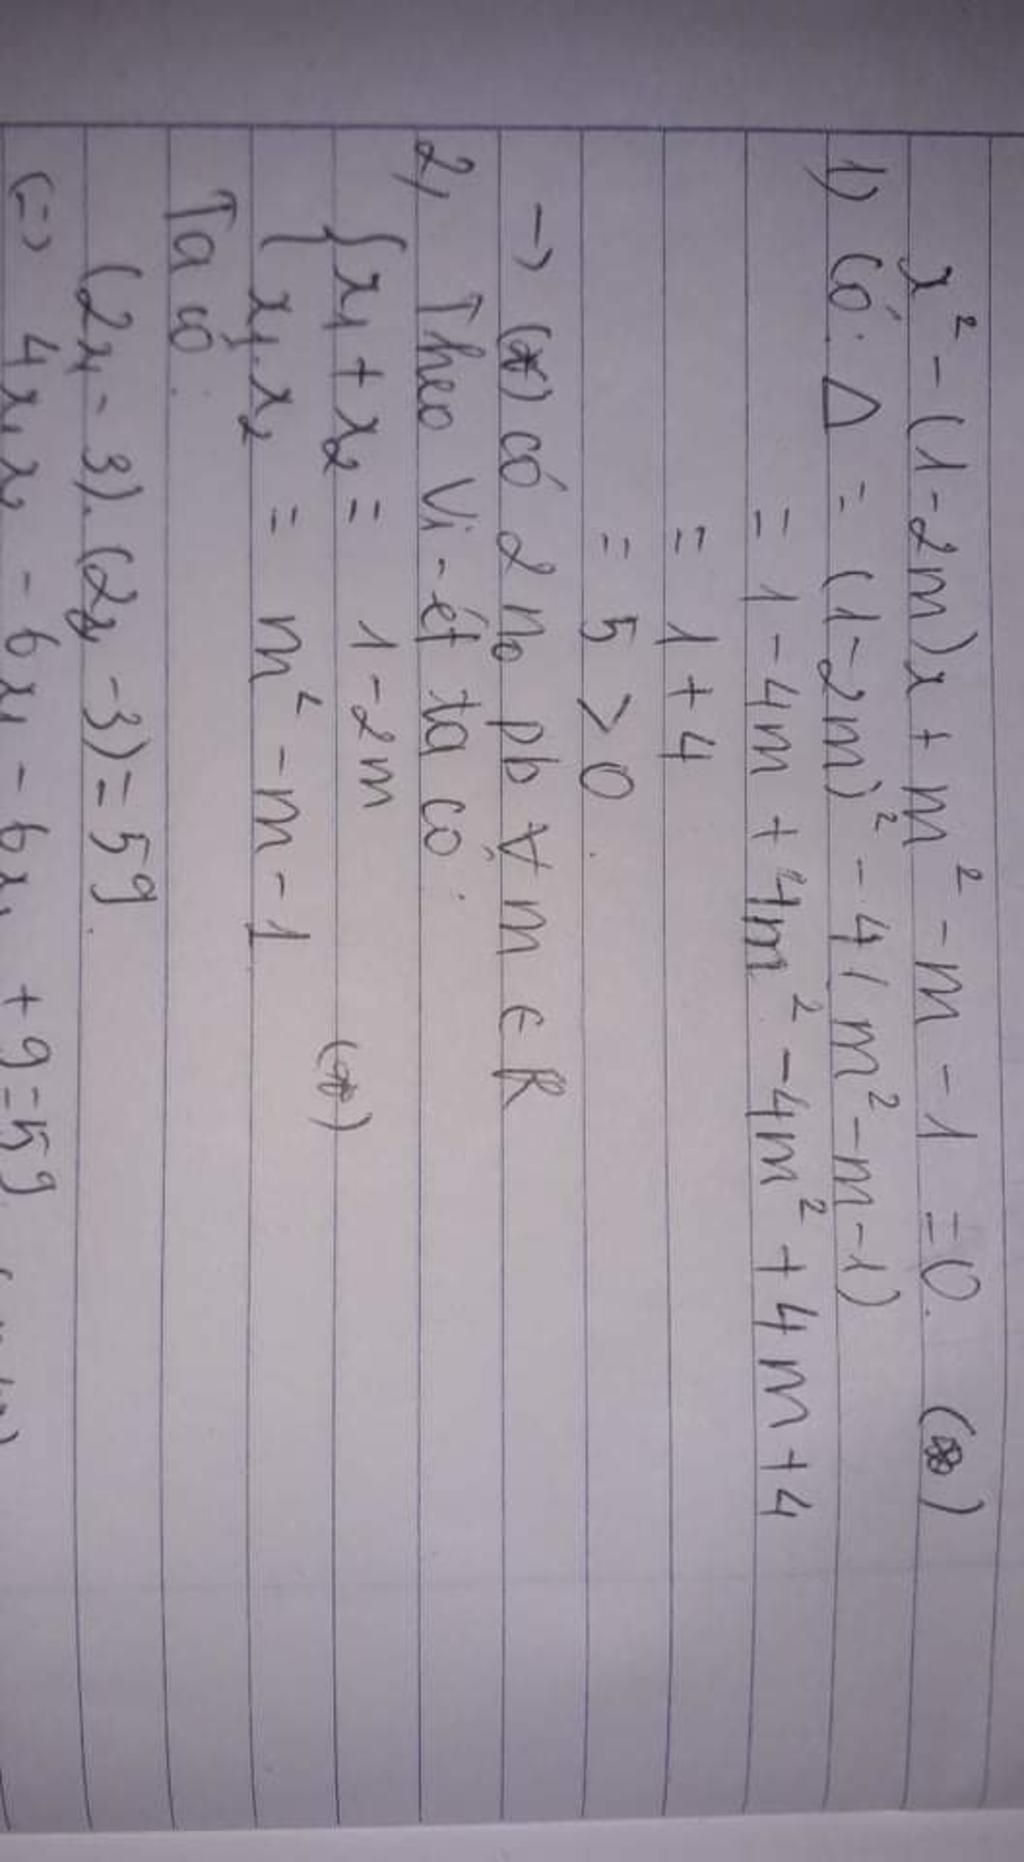 x² - (1-2m)x + m² - m - 1 = 0. (*)
1) Có: Δ = (1-2m)² - 4(m² - m - 1)
= 1 - 4m + 4m² - 4m² + 4m + 4
= 1 + 4
= 5 > 0.
→ (*) có 2 n₀ pb ∀ m ∈ R
2, Theo Vi-ét ta có:
{ x₁ + x₂ = 1 - 2m (*)
{ x₁.x₂ = m² - m - 1
Ta có:
(2x₁ - 3).(2x₂ - 3) = 59.
(=) 4x₁x₂ - 6x₁ - 6x₂ + 9 = 59